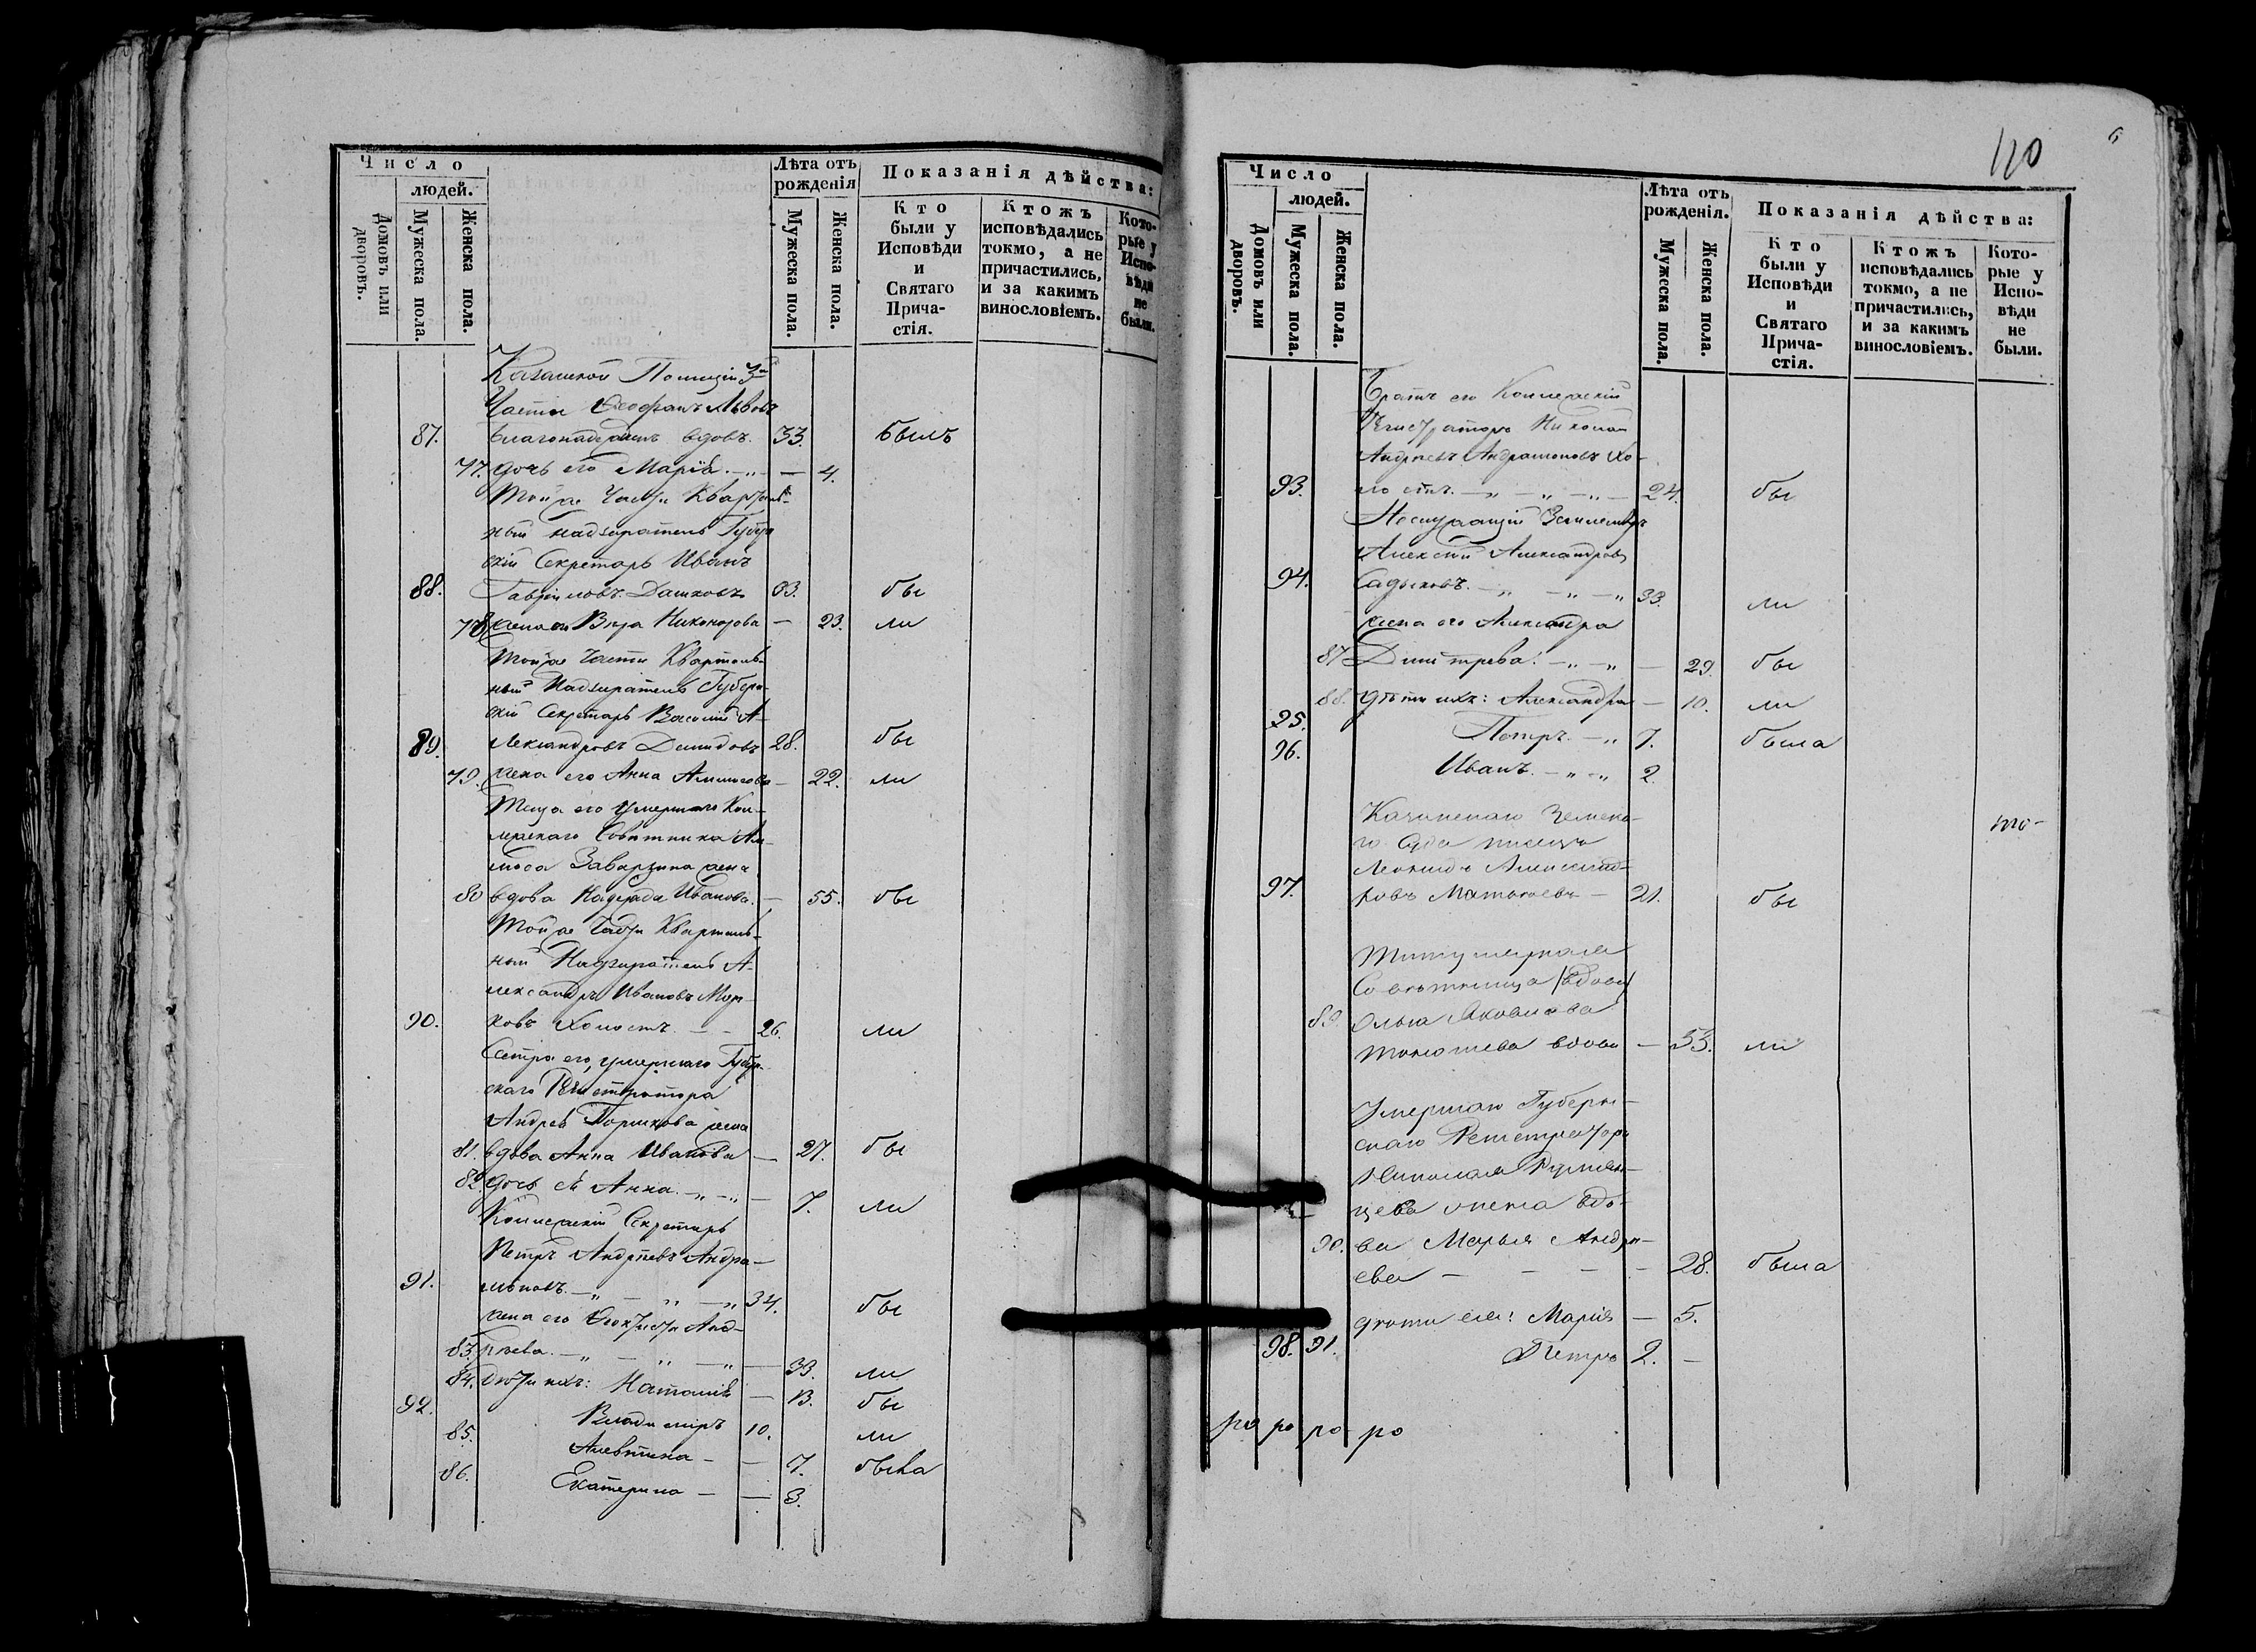 Число
людей.
Домовъ или дворовъ.
Мужеска пола.
Женска пола.
Лѣта отъ рожденія
Мужеска пола.
Женска пола.
Показанія дѣйства:
Кто были у Исповѣди и Святаго Прича-
стія.
Ктожъ исповѣдались токмо, а не причастились, и за какимъ винословіемъ.
Кото-
рые у Испо-
вѣди не были.
Казанской Полиціи 3й
Части Ѳеофанъ Львовъ
87. вдовъ. 33. былъ
77. дочь его Марія. — 4.
Тойже Части Кварталь-
ный надзиратель Губер
скій Секретарь Иванъ
88. Гавриловъ Дашковъ 33. бы
78. жена ег Вѣра Никонорова — 23. ли
Тойже Части Кварталь-
ный Надзиратель Губерн-
скій Секретарь Василій А-
89. лександровъ Демидовъ 28. бы
79. жена его Анна — 22. ли
Теща его умершаго Кол-
лежскаго Совѣтника
Заварзина жена
80 вдова Надежда Иванова. — 55. бы
Тойже Части Кварталь-
ный Надзиратель А-
лександръ Ивановъ Мор-
90. ковъ Холостъ. — — 26. ли
Сестра его, умершаго Губер-
скаго Регистратора
Андрея Горшкова жена
81. вдова Анна Иванова — 27. бы
82. дочь ея Анна. — 7. ли
Коллежскій Секретарь
Петръ Андреевъ Андра-
91. моновъ. — 34. бы
жена его Анд-
83. реева. — 33. ли
84. дѣти ихъ: Наталія — 13. бы
92. Владиміръ 10. ли
85. Алевтина — — 7. была
86. Екатерина — — 3.
110
6
Число
людей.
Домовъ или дворовъ.
Мужеска пола.
Женска пола.
Лѣта отъ рожденія.
Мужеска пола.
Женска пола.
Показанія дѣйства:
Кто были у Исповѣди и Святаго Прича-
стія.
Ктожъ исповѣдались токмо, а не причастились, и за какимъ винословіемъ.
Кото-
рые у Испо-
вѣди не были.
Братъ его Коллежскій
Регистраторъ Николай
Андреевъ Андрамоновъ Хо-
93. лостъ. — 24. бы
Землемѣръ
Алексѣй Александровъ
94. Садыковъ. — 33. ли
жена его Александра
87 Димитрева. — 29. бы
88. дѣти ихъ: Александра — 10. ли
95. Петръ. — 7. была
96. Иванъ. — 2.
Земска-
го Суда писецъ
Леонидъ Александ-
97. ровъ — 21. бы
Титулярная
Совѣтница (вдова)
89 Ольга Яковлева
вдова — 53. ли
Умершаго Губерн-
скаго Регистратора
Николая Румян-
цева жена вдо-
90. ва Марья Андре-
ева — — — — 28. была
дѣти ея: Марія — 5.
98. 91. Петръ 2. —
ро ро ро ро